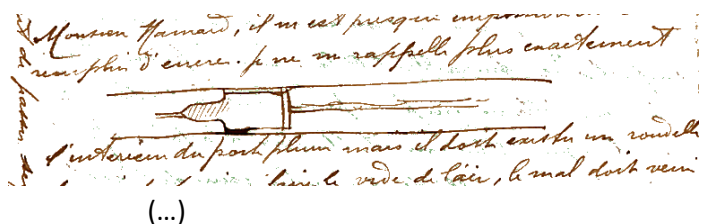 Monsieur Hamard, il m'est presque
remplir d'encre. je ne m rappelle plus exactement
l'interieur du port plum mais il doit exister un rondelle
le vide de l'air, le mal doit venir
de passer
(...)